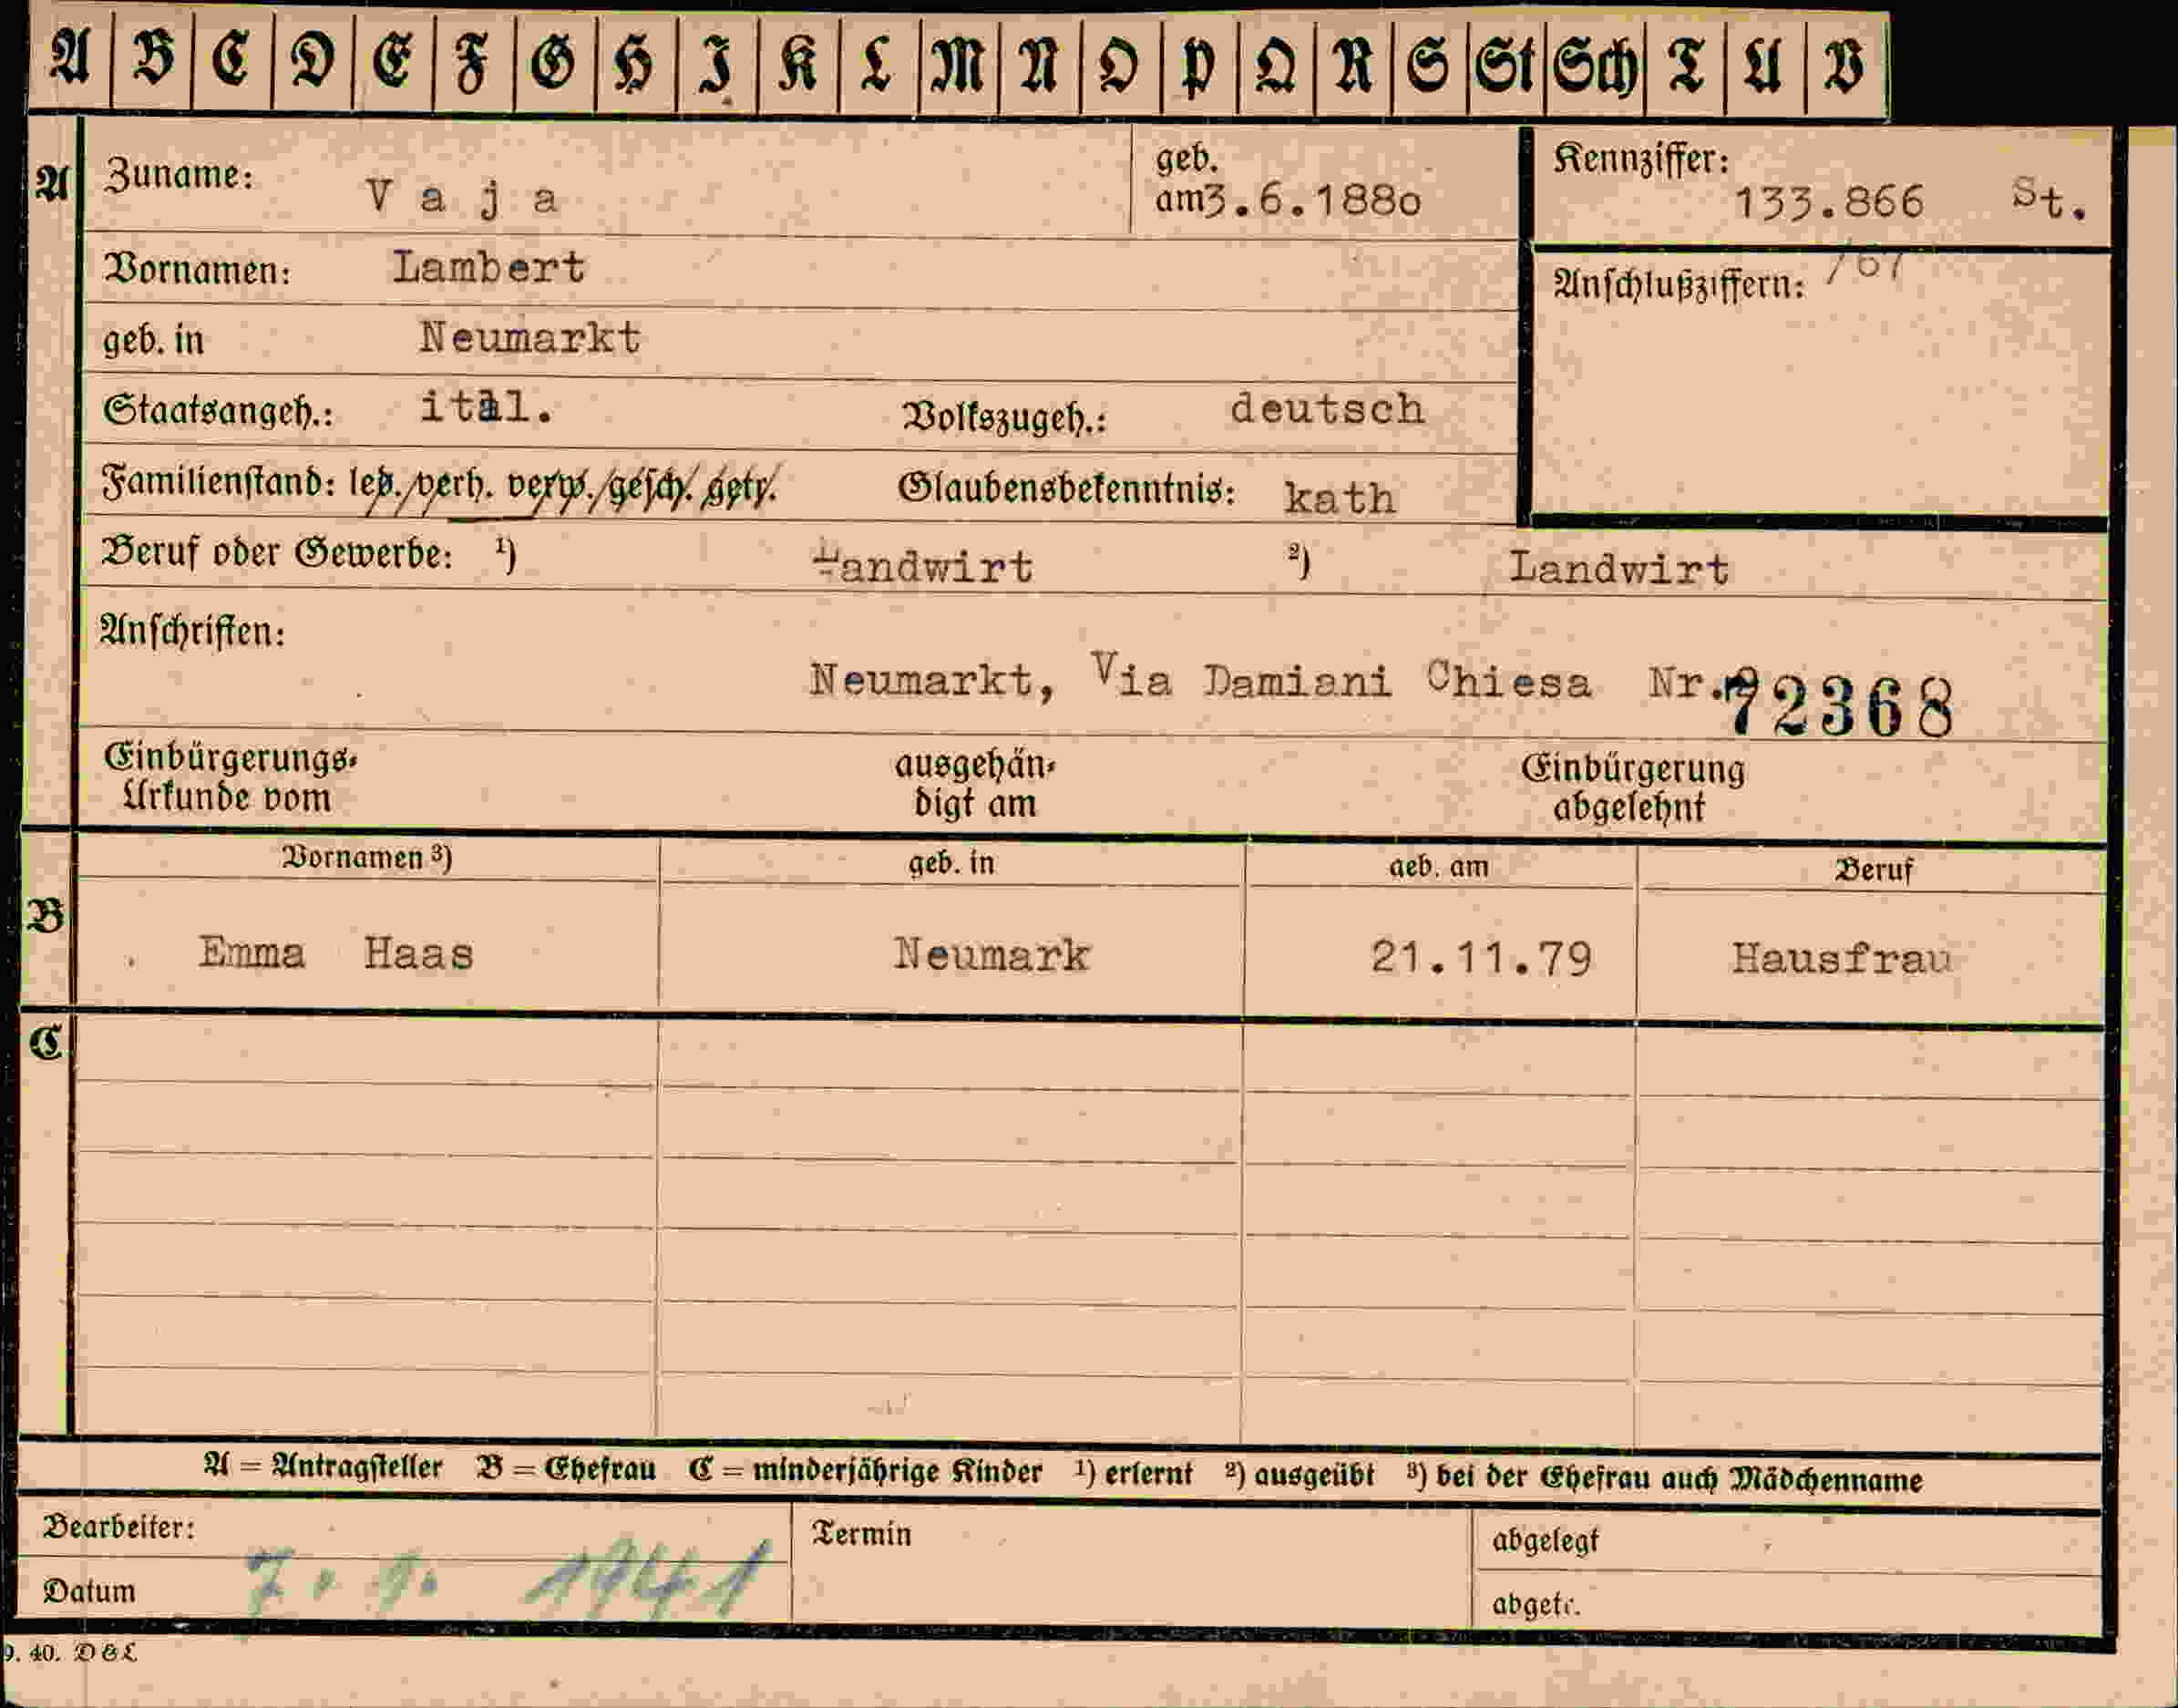 A B C D E F G H I K L M N O P Q R S St Sch T U V
A Zuname: Vaja geb. am 3.6.1880 Kennziffer: 133.866 St.
Vornamen: Lambert Anschlußziffern: 767
geb. in Neumarkt
Staatsangeh.: ital. Volkszugeh.: deutsch
Familienstand: led. verh. verw. gesch. getr. Glaubensbekenntnis: kath
Beruf oder Gewerbe: 1) Landwirt 2) Landwirt
Anschriften:
Neumarkt, Via Damiani Chiesa Nr. 72368
Einbürgerungs- Urkunde vom ausgehän- digt am Einbürgerung abgelehnt
Vornamen 3) geb. in geb. am Beruf
B Emma Haas Neumark 21.11.79 Hausfrau
C
A = Antragsteller B = Ehefrau C = minderjährige Kinder 1) erlernt 2) ausgeübt 3) bei der Ehefrau auch Mädchenname
Bearbeiter: Termin abgelegt
Datum 7. 9. 1941 abgetr.
9. 40. D & L